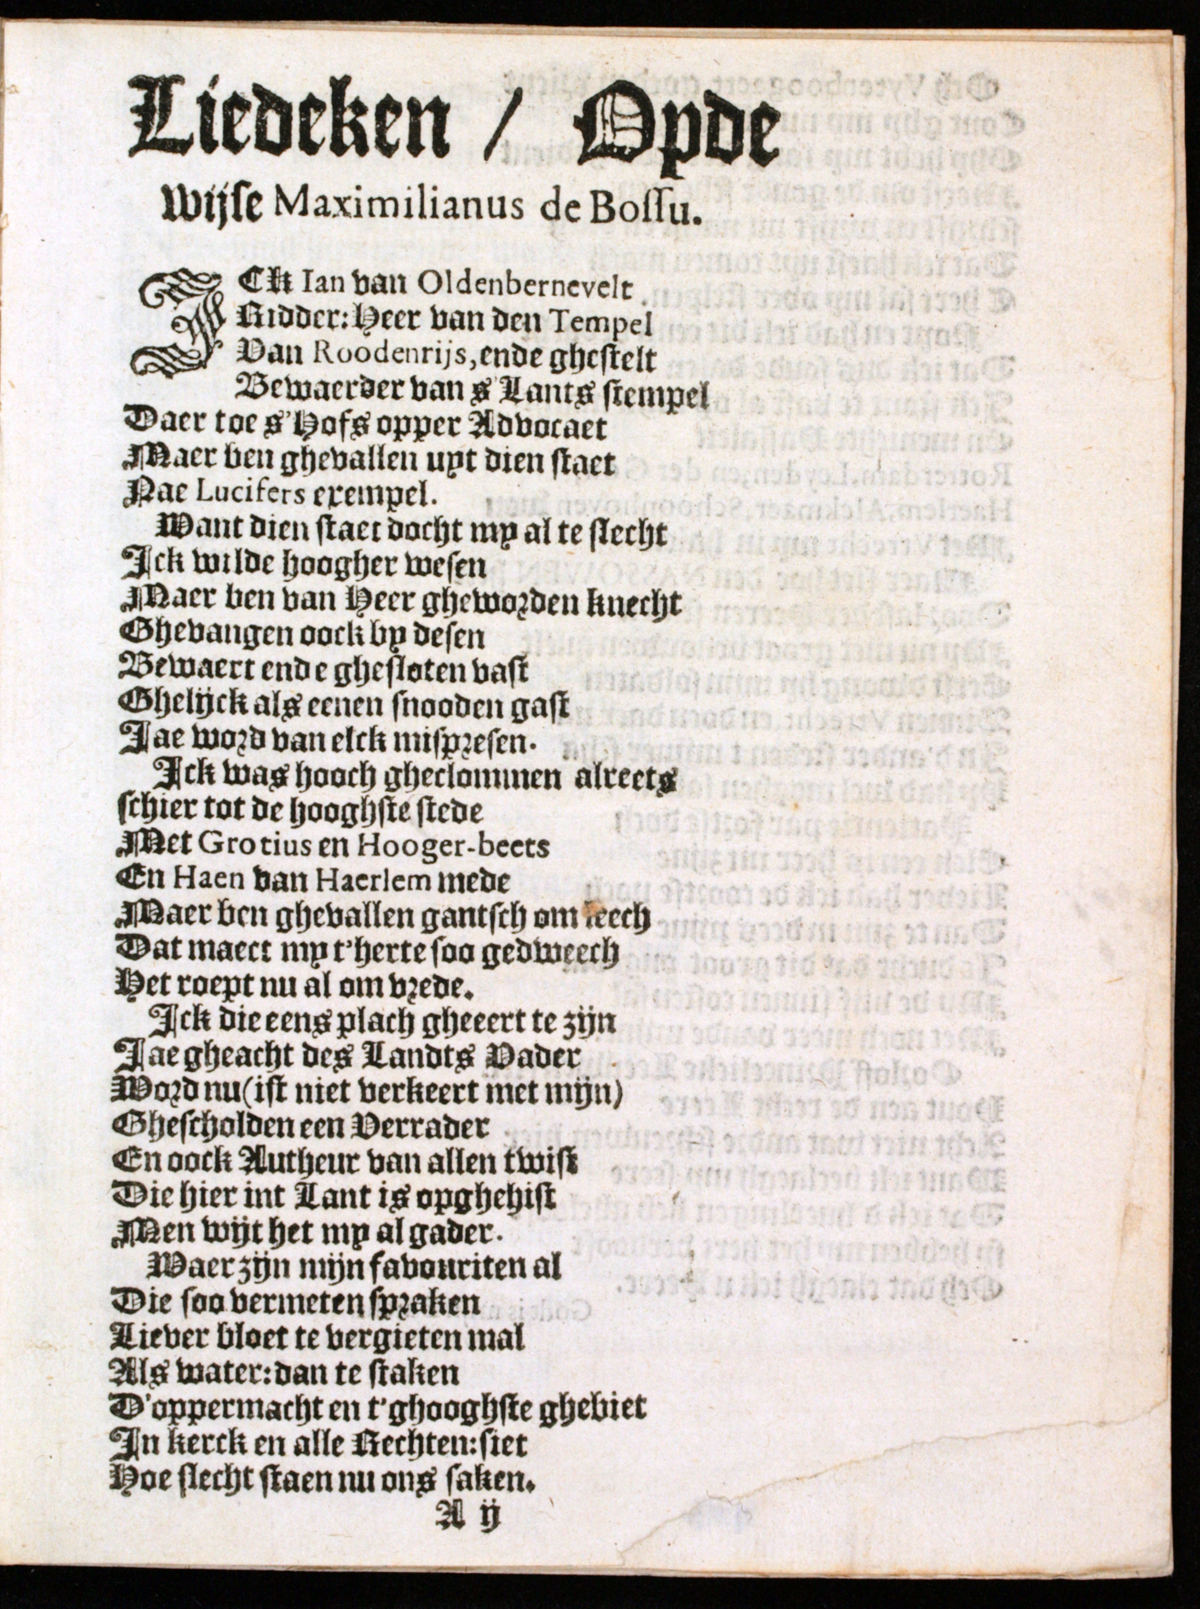 Liedeken / Opde
wijse Maximilianus de Bossu.
ICk Ian van Oldenbernevelt
Ridder: Heer van den Tempel
Van Roodenrijs, ende ghestelt
Bewaerder van s'Lants stempel
Daer toe s'Hofs opper Advocaet
Maer ben ghevallen uyt dien staet
Nae Lucifers exempel.
Want dien staet docht my al te slecht
Ick wilde hoogher wesen
Maer ben van Heer gheworden knecht
Ghevangen oock by desen
Bewaert ende ghesloten vast
Ghelijck als eenen snooden gast
Jae word van elck mispresen.
Ick was hooch gheclommen alreets
schier tot de hooghste stede
Met Grotius en Hooger-beets
En Haen van Haerlem mede
Maer ben ghevallen gantsch om leech
Dat maect my t'herte soo gedweech
Het roept nu al om vrede.
Ick die eens plach gheeert te zijn
Jae gheacht des Landts Vader
Word nu (ist niet verkeert met mijn)
Ghescholden een Verrader
En oock Autheur van allen twist
Die hier int Lant is opghehist
Men wijt het my al gader.
Waer zijn mijn favouriten al
Die soo vermeten spraken
Liever bloet te vergieten mal
Als water: dan te staken
D'oppermacht en t'ghooghste ghebiet
In kerck en alle Rechten: siet
Hoe slecht staen nu ons saken.
A ij